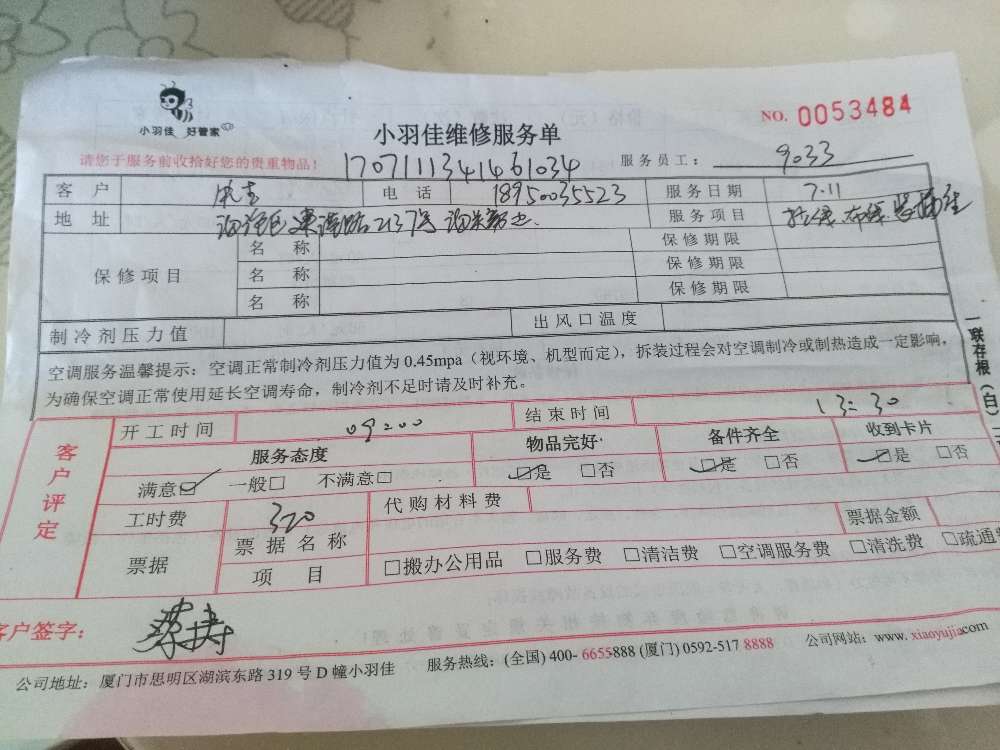 小羽佳 好管家
小羽佳维修服务单
NO. 0053484
请您于服务前收拾好您的贵重物品！
17071113414461034
服务员工： 9033
客户 电话 18950035523 服务日期 7.11
地址 2137号 服务项目 布线
保修项目 名称 保修期限
名称 保修期限
名称 保修期限
制冷剂压力值 出风口温度
空调服务温馨提示：空调正常制冷剂压力值为0.45mpa（视环境、机型而定），拆装过程会对空调制冷或制热造成一定影响，
为确保空调正常使用延长空调寿命，制冷剂不足时请及时补充。
一联存根（白）
客户评定
开工时间 09:00 结束时间 13:30
服务态度 物品完好 备件齐全 收到卡片
满意☑ 一般□ 不满意□ ☑是 □否 ☑是 □否 ☑是 □否
工时费 320 代购材料费
票据 票据名称 票据金额
项目 □搬办公用品 □服务费 □清洁费 □空调服务费 □清洗费 □疏通费
客户签字：
公司地址：厦门市思明区湖滨东路319号D幢小羽佳 服务热线：(全国) 400-6655888 (厦门) 0592-517 8888 公司网站：www.xiaoyujia.com